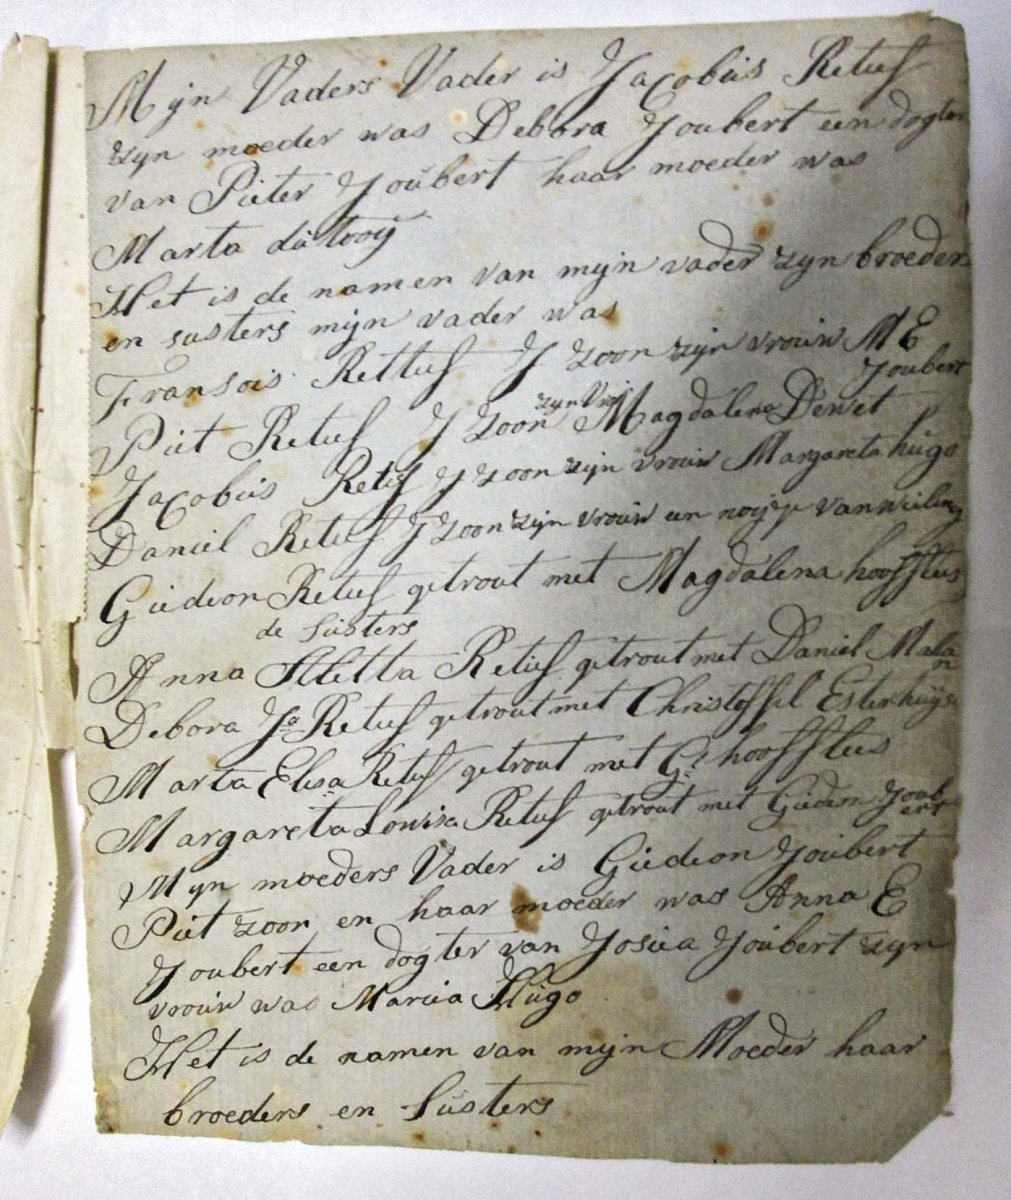 Mijn Vaders Vader is Jacobus Retief
zyn moeder was Debora Joubert een dogter
van Pieter Joubert haar moeder was
Marta dü tooij
Het is de namen van mijn vader zyn broeders
en susters mijn vader was
Fransois Retief J zoon zijn vrouw M E
Joubert
Piet Retief J zoon zyn Vrou Magdalena Dewet
Jacobus Retief J zoon zijn vrouw Margareta hügo
Daniel Retief J zoon zijn vrouw een nooye van
Giedeon Retief getrout met Magdalena
de süsters
Anna Aletta Retief getrout met Daniel Malan
Debora Ja Retief getrout met Christoffel Esterhuijse
Marta Elisa Retief getrout met G
Margareta Lowisa Retief getrout met Giedion Joubert
Mijn moeders Vader is Giedeon Joübert
Piet zoon en haar moeder was Anna E
Joubert een dogter van Josua Joübert zijn
vrouw was Maria Hügo
Het is de namen van mijn Moeder haar
broeders en süsters